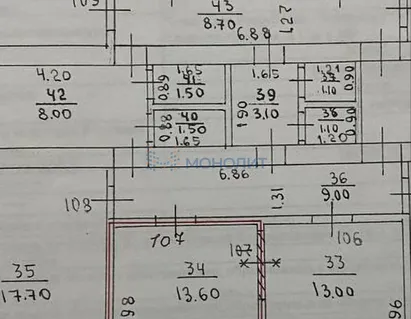 109
43
8.70
6.88
1.22
4.20
42
8.00
0.89
1.65
41
1.50
1.65
39
3,10
1.90
1.21
1.10
0.90
0.88
40
1.50
1.65
38
1.10
1.20
0.90
МОНОЛИТ
6.86
1.31
36
9.00
108
107
107
106
35
17.70
34
13.60
33
13.00
98
96